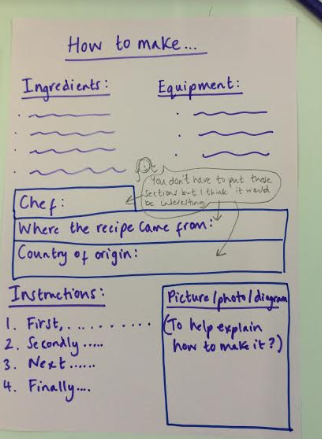 How to make...
Ingredients:
Equipment:
You don't have to put these
sections but I think it would
be interesting
Chef:
Where the recipe came from:
Country of origin:
Instructions:
1. First, . . . . . . . . . .
2. Secondly .....
3. Next ......
4. Finally....
Picture/photo/diagram
(To help explain
how to make it?)